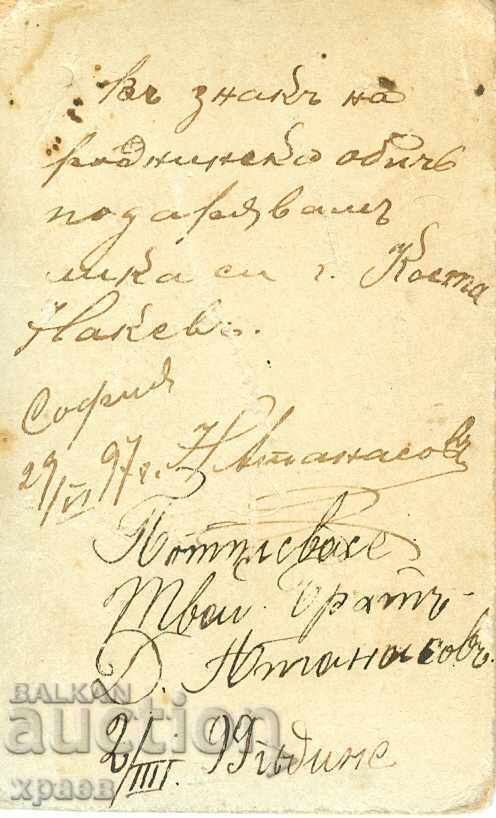 въ знакъ на
роднинска обичь
подарявамъ
лика си г. Коста
Накевъ.
София
29/VI 97 г. Н Атанасовъ
Потписвасе
Твой братъ
Д. Атанасовъ.
2/III. 99 години
BALKAN
auction
храев